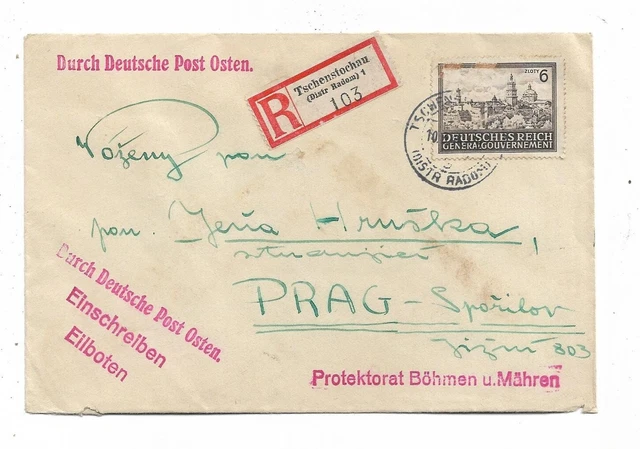 Durch Deutsche Post Osten.
R
Tschenstochau
(Distr Radom) 1
103
ZLOTY 6
DEUTSCHES REICH
GENERALGOUVERNEMENT
TSCHEN
(DISTR RADOM)
Vážený pan
pan Jeňa Hruška,
studující
PRAG - Spořilov
Jižní 803
Durch Deutsche Post Osten.
Einschreiben
Eilboten
Protektorat Böhmen u. Mähren